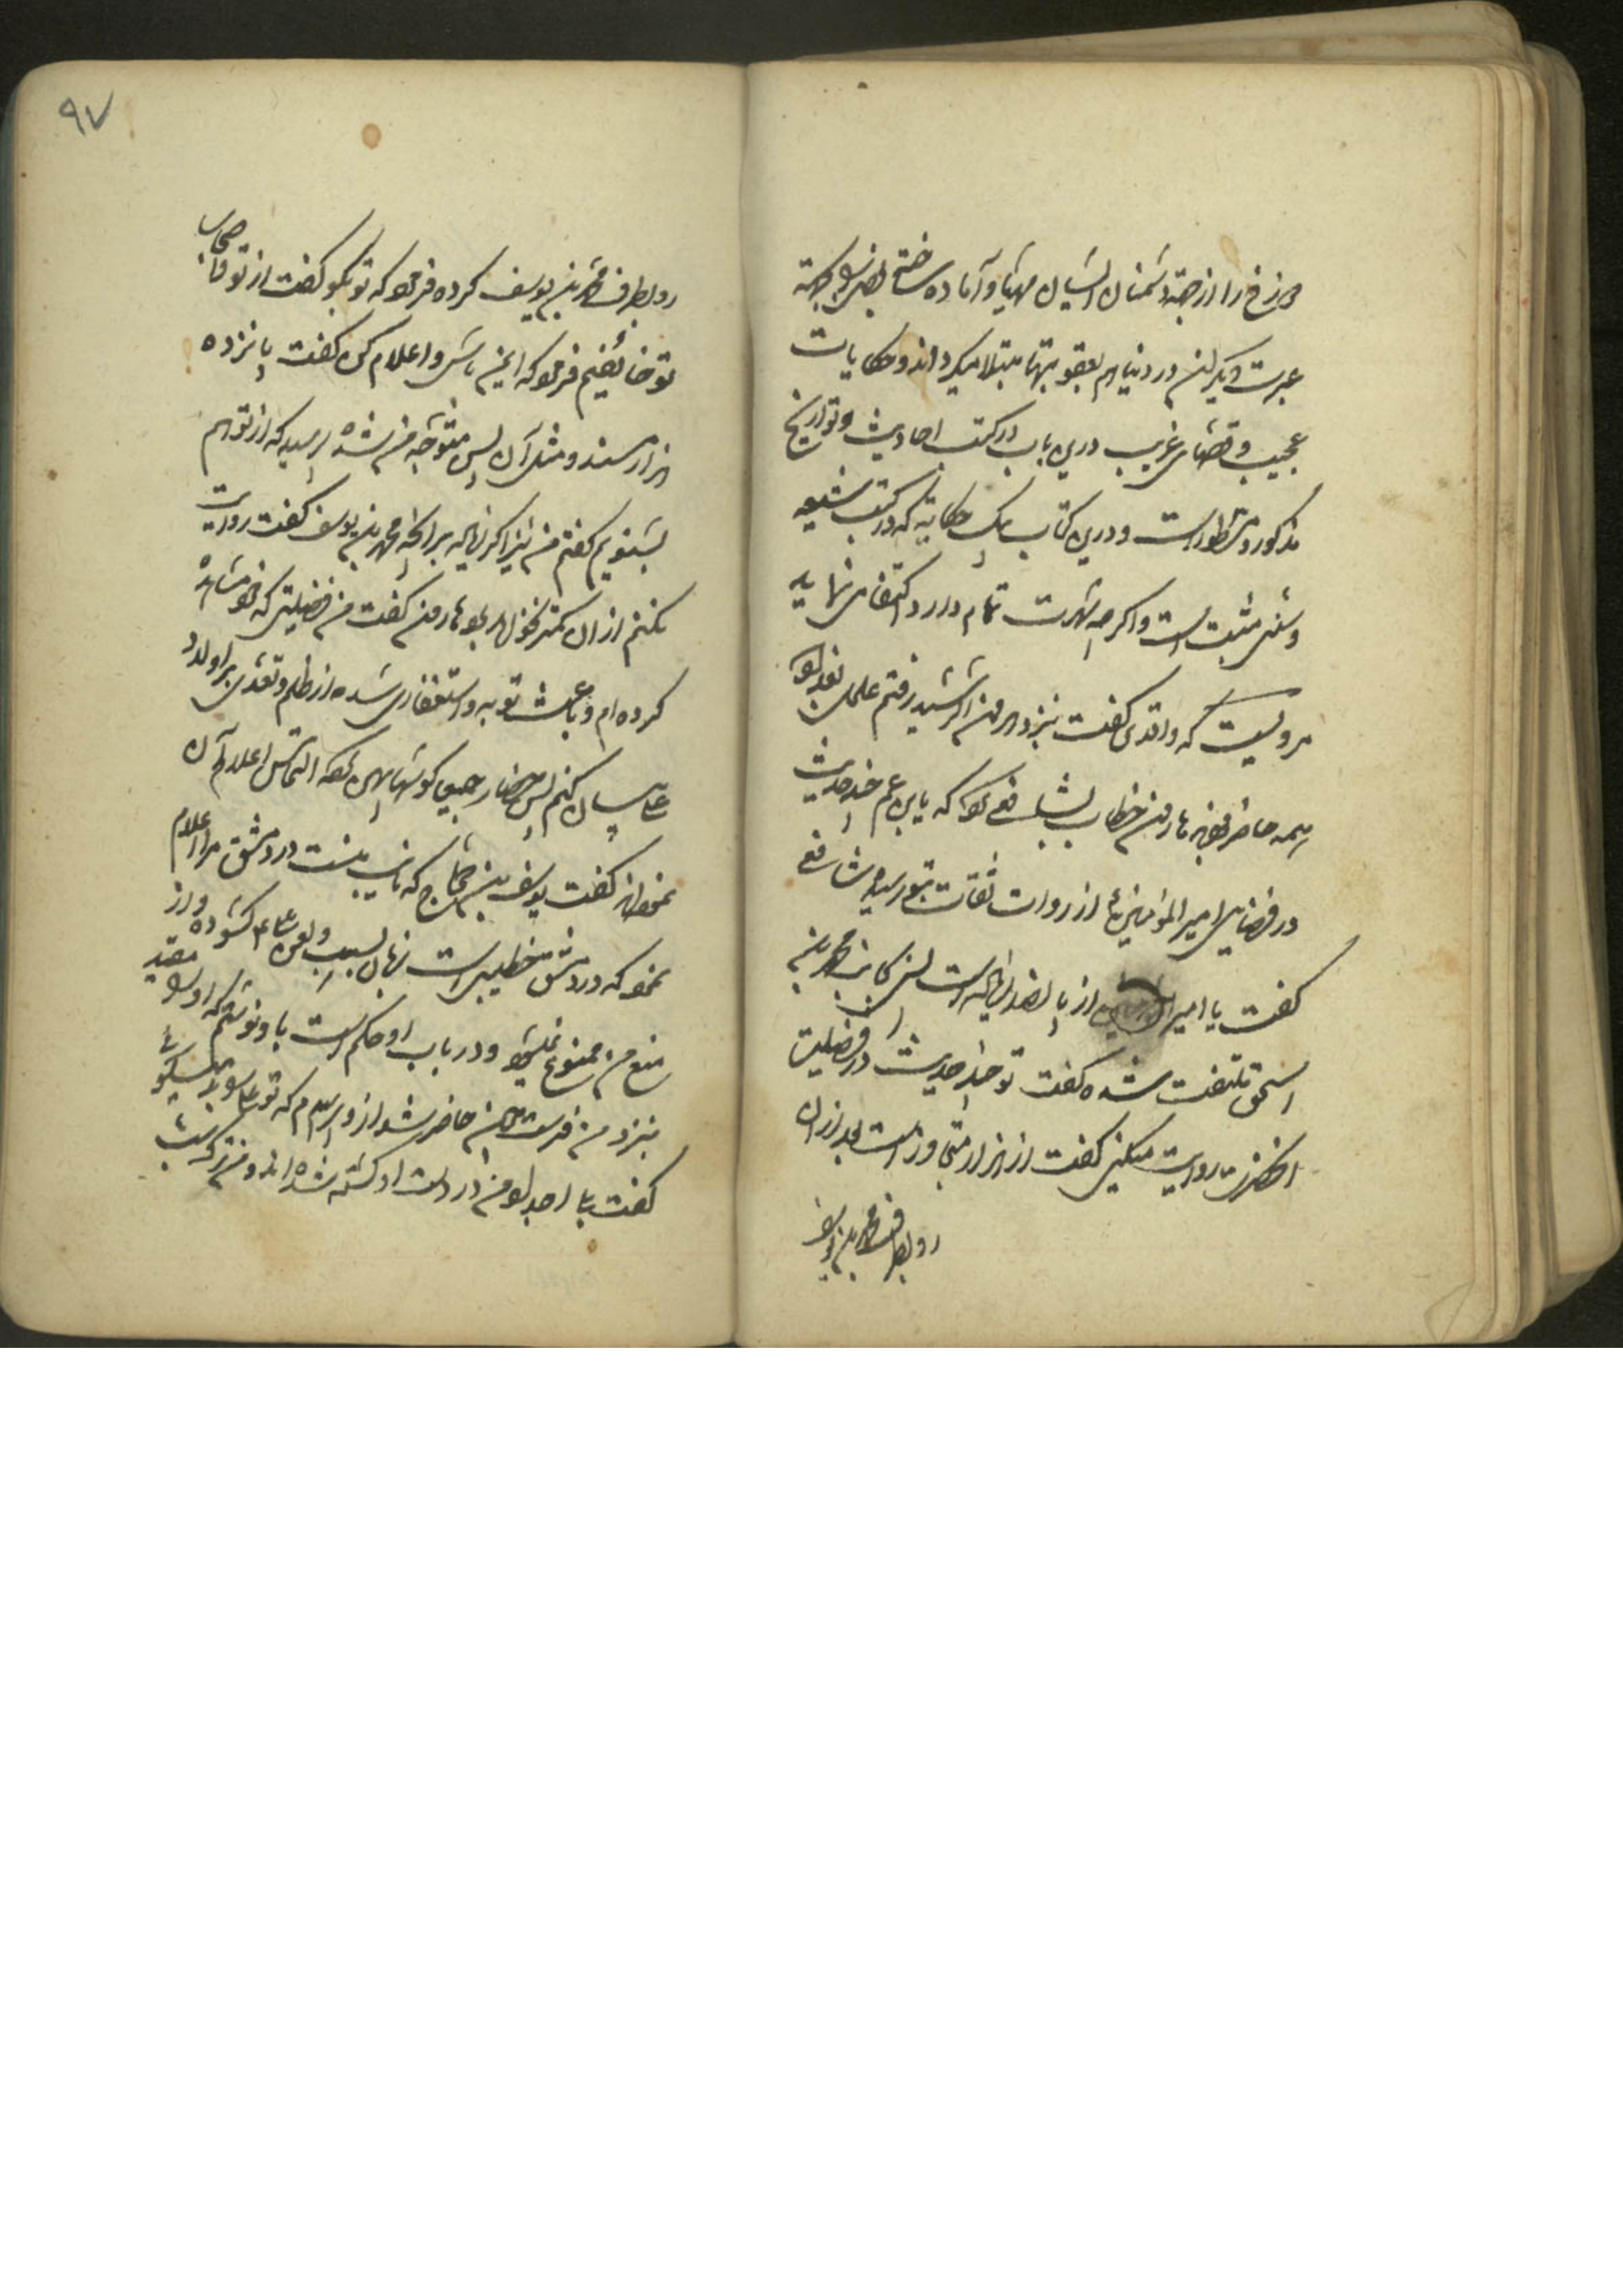 دوزخ را از جهة دشمنان ایشان مهیا و آماده ساخته بعضی را بجهة
عبرت دیگران در دنیا هم بعقوبتها مبتلا میگرداند و حکایات
عجیب و قصهای غریب درین باب در کتب احادیث و تواریخ
مذکور و مسطور است و درین کتاب بیک حکایة که در کتب شیعه
و سنی مثبت است و اگر چه شهرت تمام دارد اکتفا می نماید
مرویست که واقدی گفت بنزد هارون الرشید رفتم علمای بغداد
همه حاضر بودند هارون خطاب بشافعی کرد که یا ابن عم چند حدیث
در فضایل امیر المؤمنین از روات ثقات بتو رسیده شافعی
گفت یا امیر المؤمنین از پانصد زیاده است پس بجانب محمد بن
اسحق ملتفت شده گفت تو چند حدیث در فضیلت
انحضرت روایت میکنی گفت از هزار متجاوز است بعد از ان
رو بطرف محمد بن یوسف
۹۷
رو بطرف محمد بن یوسف کرده فرمود که تو بگو گفت از تو و اصحاب
تو خائفیم فرمود که ایمن باش و اعلام کن گفت پانزده
هزار مسند و مثل آن پس متوجه من شده پرسید که از تو هم
بشنویم گفتم من نیز اگر زیاده بر آنچه محمد بن یوسف گفت روایت
نکنم از ان کمتر نخواهد بود هارون گفت من فضیلتی که خود مشاهده
کرده ام و باعث توبه و استغفار من شده از ظلم و تعدی بر اولاد
عباسیان کنم پس حضار جمیع گوشها پهن کرده التماس اعلام آن
نمودند گفت یوسف بن حجاج که نایب منست در دمشق مرا اعلام
نمود که در دمشق خطیبی است زبان بسب و لعن علی کشوده و از
منع من ممنوع نمیشود و در باب او حکم چیست باو نوشتم که او را مقید
بنزد من فرست چون حاضر شد از و پرسیدم که تو علی را بد میگوئی
گفت بلی اجداد من در دست او کشته شده اند و من ترک